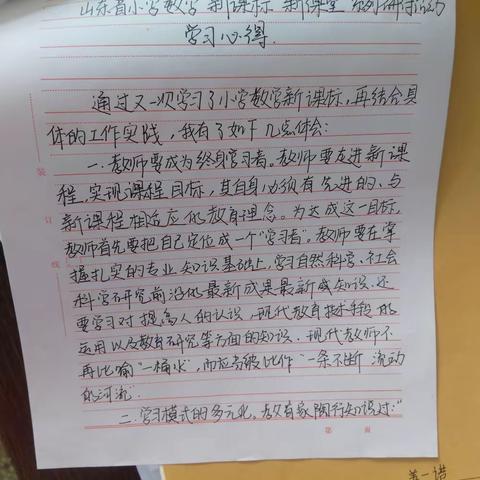 山东省小学数学"新课标 新课堂"系列研讨活动
学习心得.
通过又一次学习了小学数学新课标,再结合具
体的工作实践,我有了如下几点体会:
一.教师要成为终身学习者。教师要走进新课
程,实现课程目标,其自身必须有先进的、与
新课程相适应的教育理念。为达成这一目标,
教师首先要把自己定位成一个"学习者"。教师要在掌
握扎实的专业知识基础上,学习自然科学、社会
科学研究前沿的最新成果最新感知识、还
要学习对提高人的认识、现代教育技术手段的
运用以及教育研究等方面的知识、现代教师不
再比喻"一桶水",而应当被比作"一条不断 流动
的河流".
二.学习模式的多元化。教育家陶行知说过:"
装
订
线
第 页